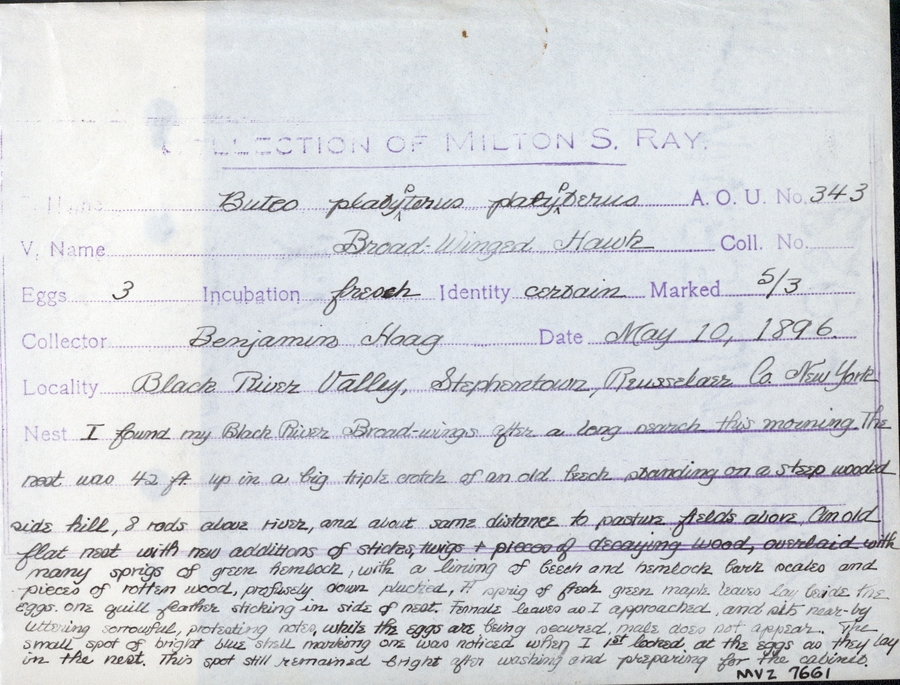 COLLECTION OF MILTON S. RAY.
S. Name Buteo platypterus platypterus A. O. U. No. 343
V. Name Broad-Winged Hawk Coll. No.
Eggs 3 Incubation fresh Identity certain Marked 5/3
Collector Benjamin Hoag Date May 10, 1896.
Locality Black River Valley, Stephentown, Rensselaer Co. New York
Nest I found my Black River Broad-wings after a long search this morning. The
nest was 42 ft. up in a big triple crotch of an old beech standing on a steep wooded
side hill, 8 rods above river, and about same distance to pasture fields above. An old
flat nest with new additions of sticks, twigs + pieces of decaying wood, overlaid with
many sprigs of green hemlock, with a lining of beech and hemlock bark scales and
pieces of rotten wood, profusely down plucked, A sprig of fresh green maple leaves lay beside the
eggs. one quill feather sticking in side of nest. Female leaves as I approached, and sits near-by
uttering sorrowful, protesting notes, while the eggs are being secured, male does not appear. The
small spot of bright blue shell marking one was noticed when I 1st looked, at the eggs as they lay
in the nest. This spot still remained bright after washing and preparing for the cabinet.
MVZ 7661